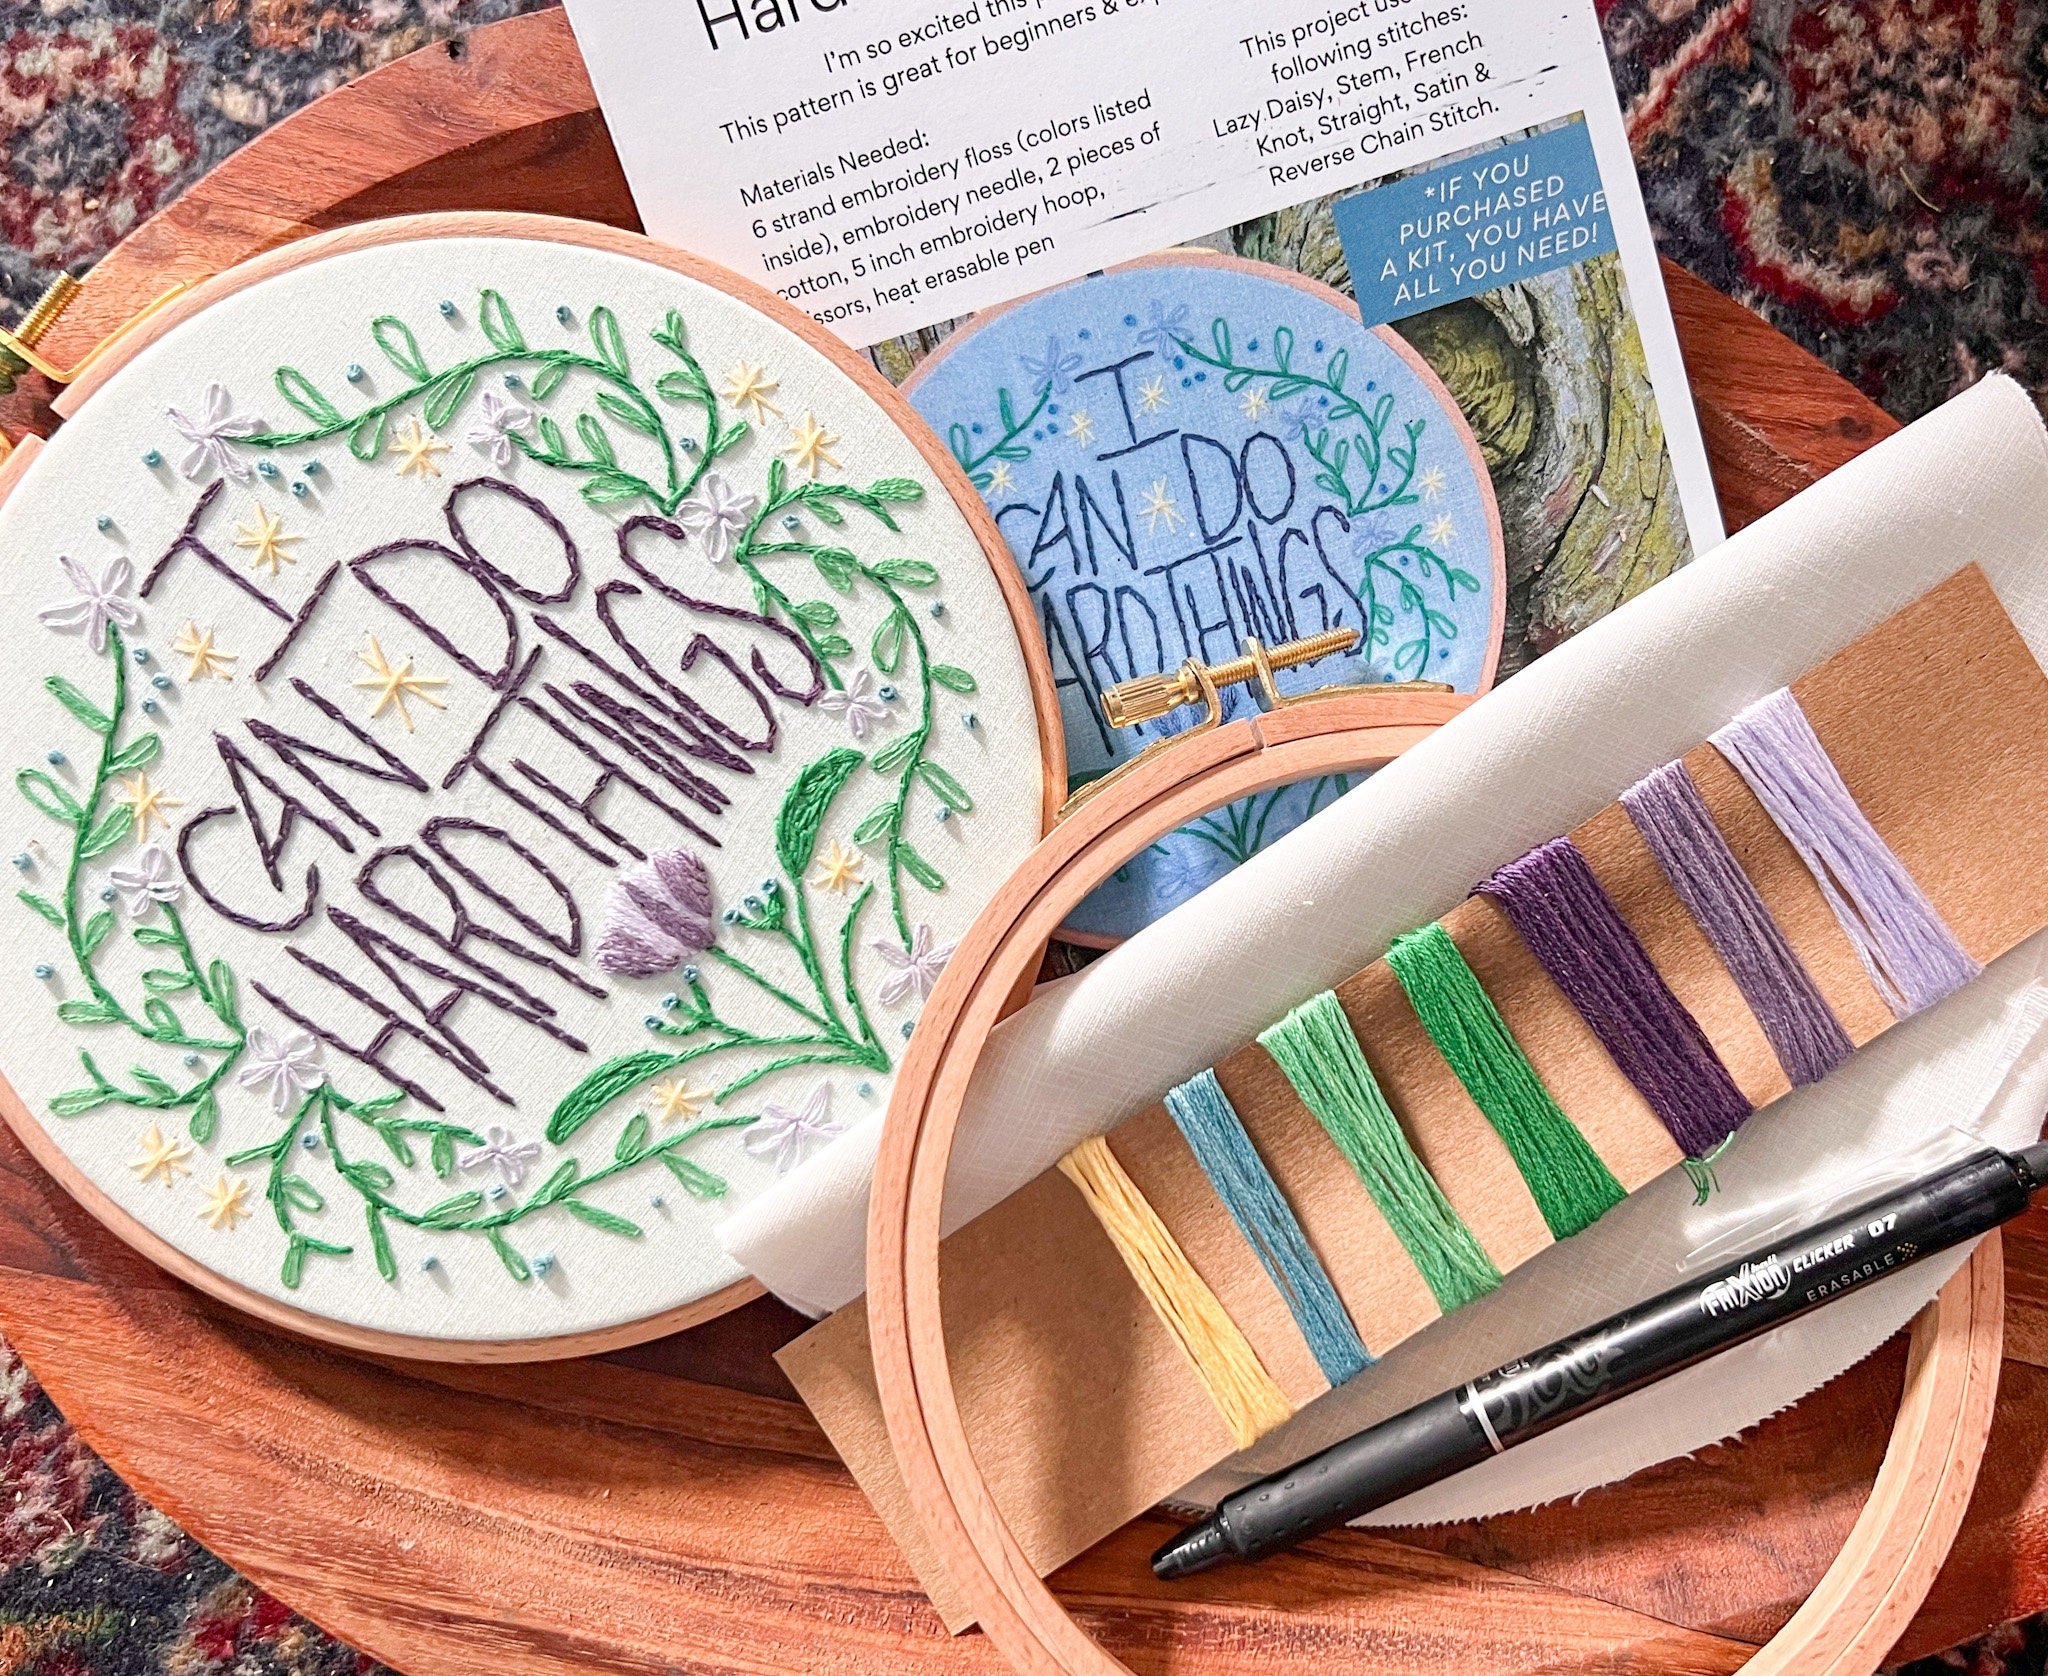 Hard
I'm so excited this
This pattern is great for beginners &
Materials Needed:
6 strand embroidery floss (colors listed
inside), embroidery needle, 2 pieces of
cotton, 5 inch embroidery hoop,
issors, heat erasable pen
This project use
following stitches:
Lazy Daisy, Stem, French
Knot, Straight, Satin &
Reverse Chain Stitch.
*IF YOU
PURCHASED
A KIT, YOU HAVE
ALL YOU NEED!
I
CAN DO
HARD THINGS
I
CAN DO
ARD THINGS
FRIXION CLICKER 07
ERASABLE